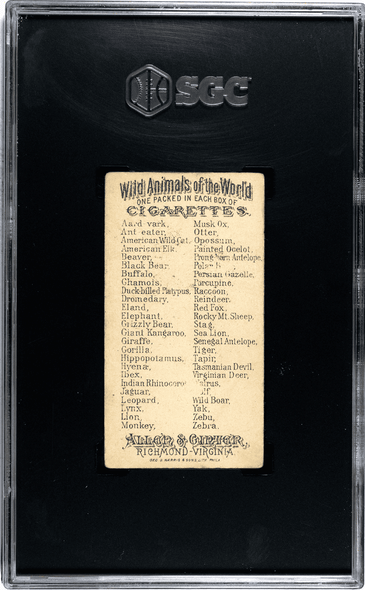 SGC
Wild Animals of the World
ONE PACKED IN EACH BOX OF
CIGARETTES.
Aard vark,
Ant eater,
American Wild Cat,
American Elk,
Beaver,
Black Bear,
Buffalo,
Chamois,
Duck-billed Platypus,
Dromedary,
Eland,
Elephant,
Grizzly Bear,
Giant Kangaroo,
Giraffe,
Gorilla,
Hippopotamus,
Hyena,
Ibex,
Indian Rhinoceros
Jaguar,
Leopard,
Lynx,
Lion,
Monkey,
Musk Ox,
Otter,
Opossum,
Painted Ocelot,
Prong Horn Antelope,
Persian Gazelle,
Porcupine,
Raccoon,
Reindeer,
Red Fox,
Rocky Mt. Sheep,
Stag,
Sea Lion,
Senegal Antelope,
Tiger,
Tapir,
Tasmanian Devil,
Virginian Deer,
Wild Boar,
Yak,
Zebu,
Zebra.
ALLEN & GINTER,
RICHMOND-VIRGINIA